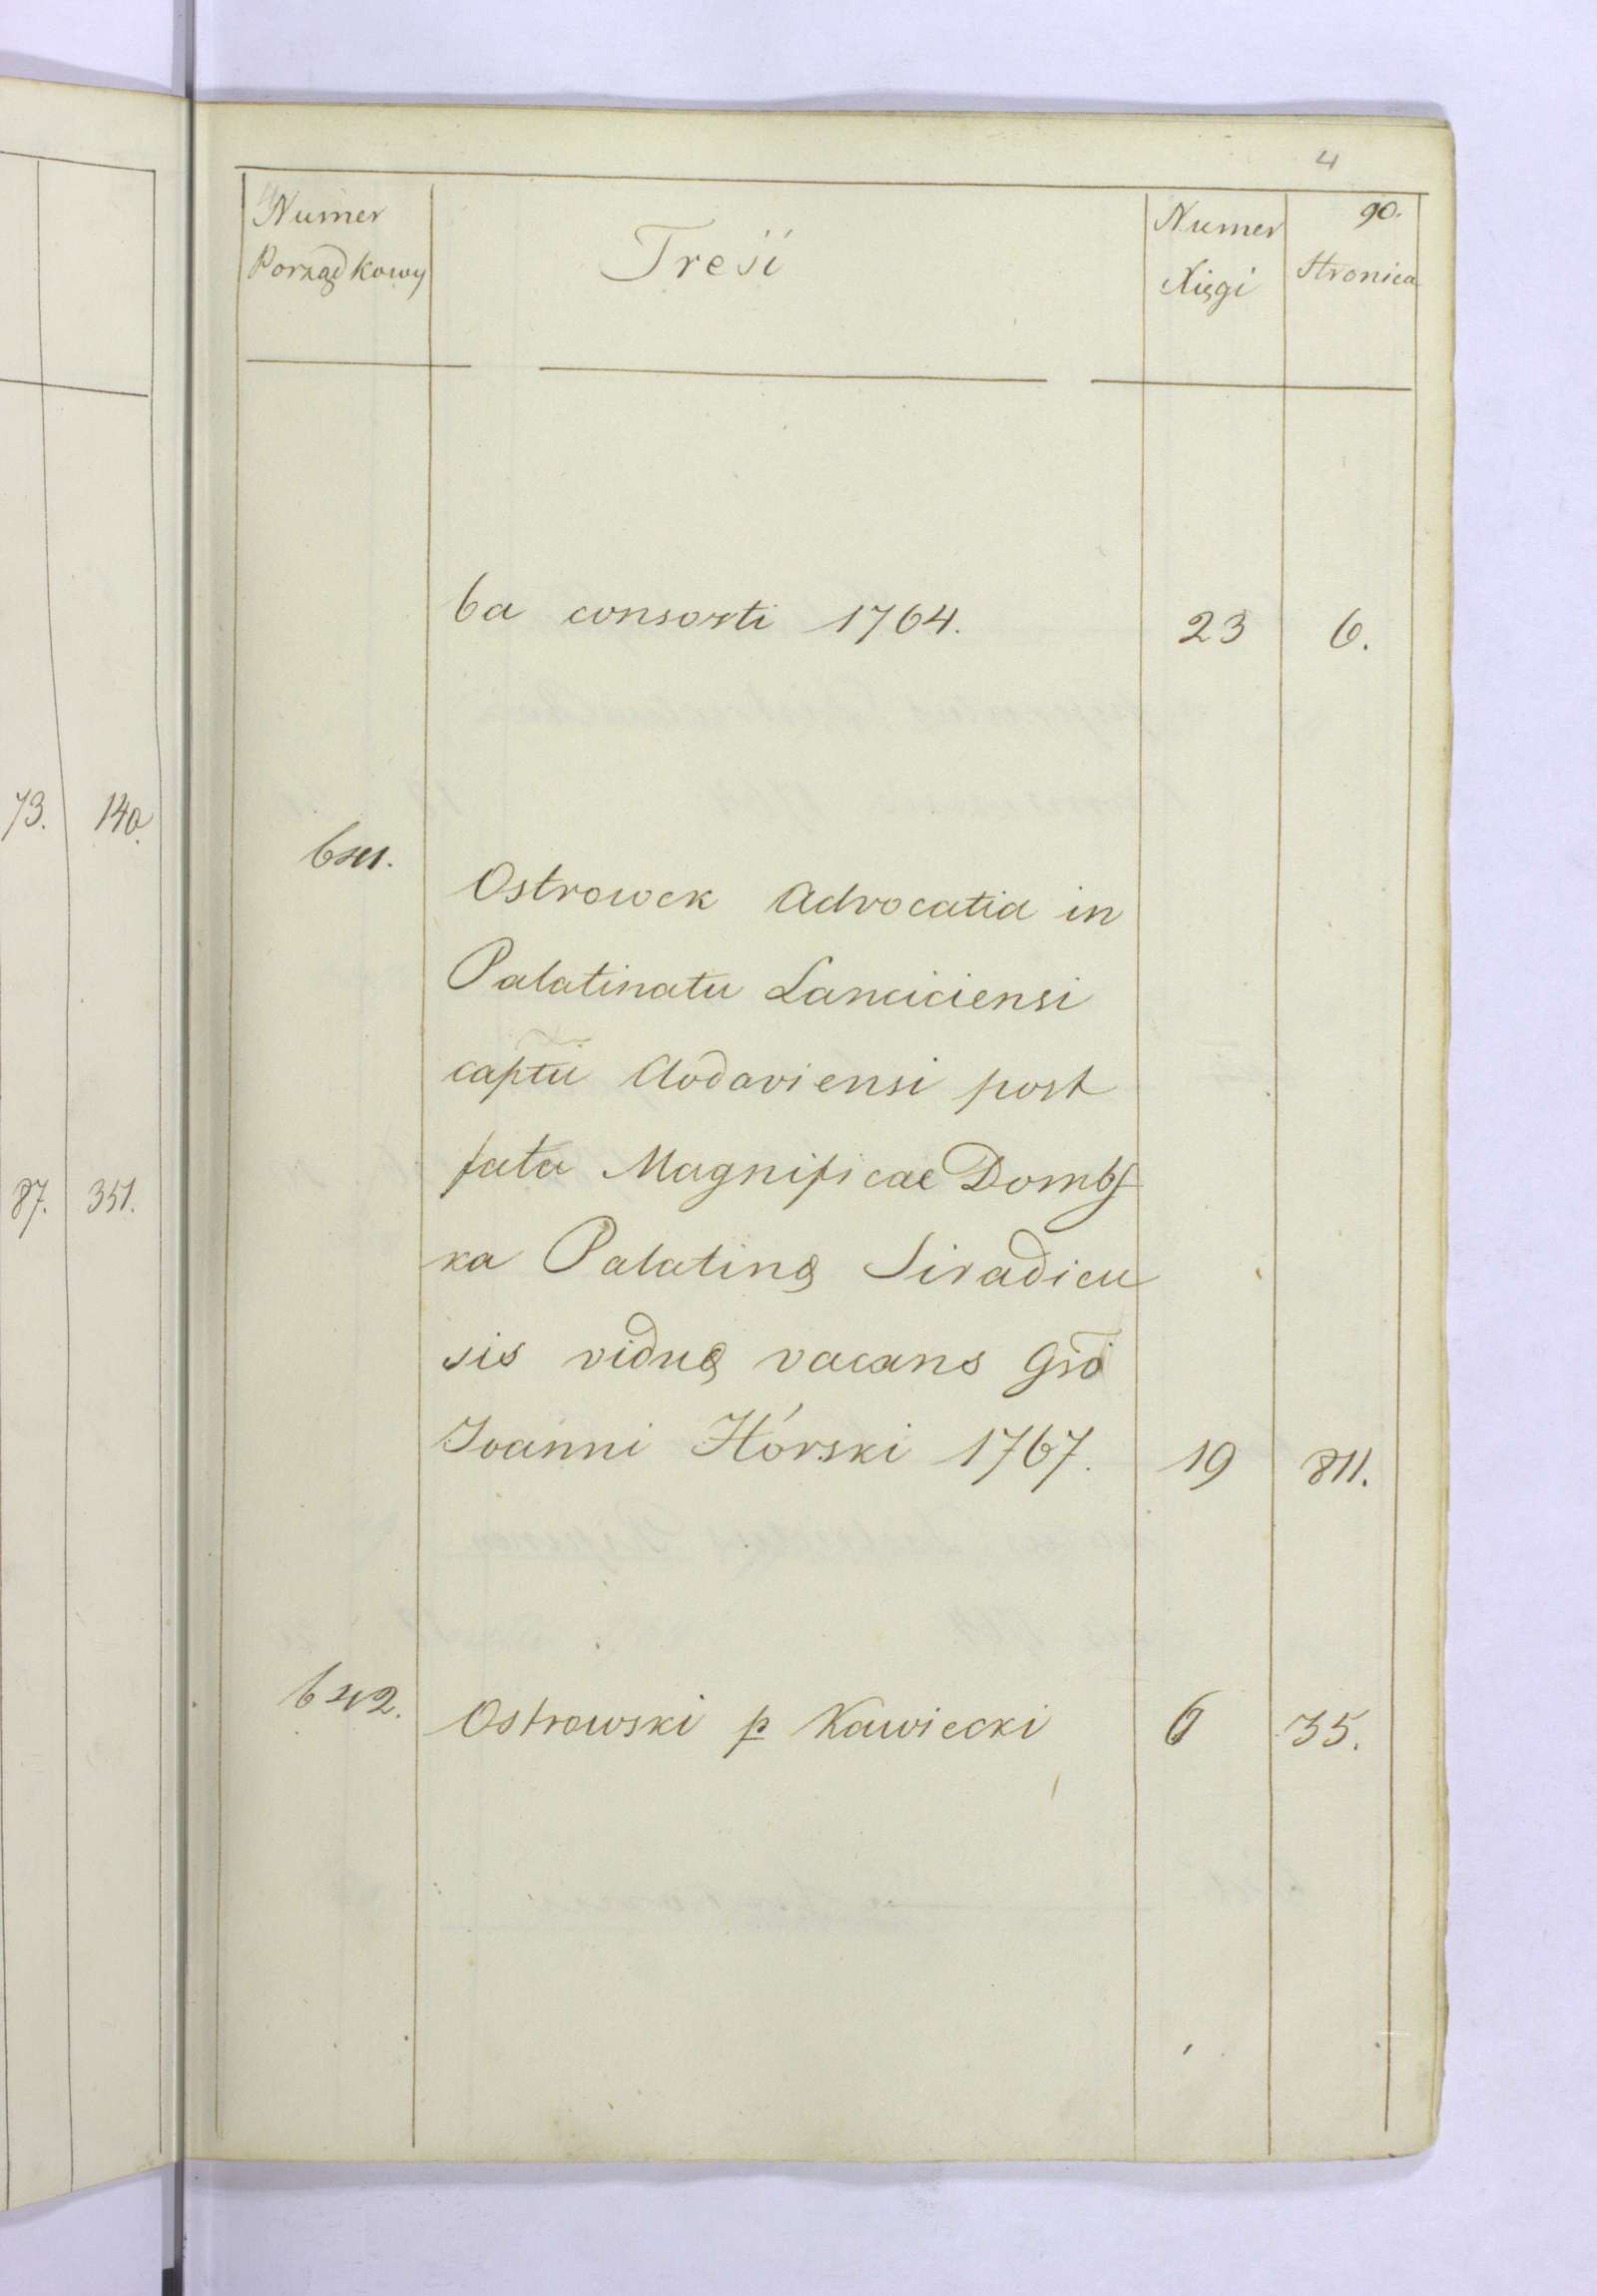 4
90.
Numer Porządkowy
Treść
Numer Xięgi
Stronica
ba consorti 1764. 23 6.
73. 140.
641.
Ostrowek Advocatia in
Palatinatu Lanciciensi
captu Clodaviensi post
fata Magnificae Dombs
87. 351.
ka Palatinę Siradien
sis viduę vacans Gro
Joanni Hórski 1767. 19 811.
642. Ostrowski p Kawiecki 6 35.